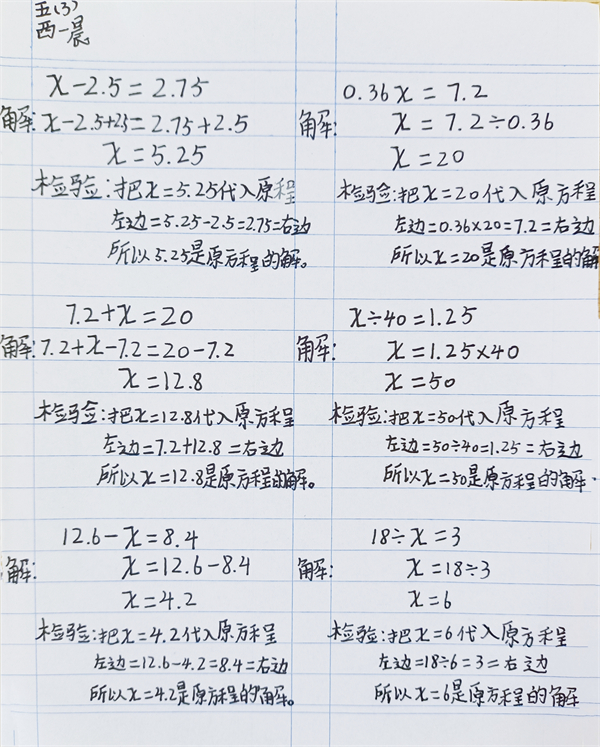 五(3)
西一晨
x-2.5=2.75
解:x-2.5+2.5=2.75+2.5
x=5.25
检验:把x=5.25代入原程
左边=5.25-2.5=2.75=右边
所以5.25是原方程的解。
0.36x=7.2
解:x=7.2÷0.36
x=20
检验:把x=20代入原方程
左边=0.36×20=7.2=右边
所以x=20是原方程的解
7.2+x=20
解:7.2+x-7.2=20-7.2
x=12.8
检验:把x=12.8代入原方程
左边=7.2+12.8=右边
所以x=12.8是原方程的解。
x÷40=1.25
解:x=1.25×40
x=50
检验:把x=50代入原方程
左边=50÷40=1.25=右边
所以x=50是原方程的解.
12.6-x=8.4
解:x=12.6-8.4
x=4.2
检验:把x=4.2代入原方程
左边=12.6-4.2=8.4=右边
所以x=4.2是原方程的解。
18÷x=3
解:x=18÷3
x=6
检验:把x=6代入原方程
左边=18÷6=3=右边
所以x=6是原方程的解